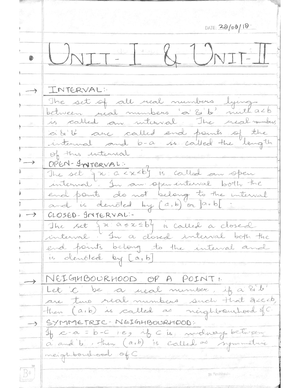 DATE: 28/08/18
UNIT-I & UNIT-II
→ INTERVAL:-
The set of all real numbers lying
between real numbers 'a & b' with a<b
is called an interval. The real number
a & b are called end points of the
interval and b-a is called the length
of this interval
→ OPEN-INTERVAL:-
The set {x a<x<b} is called an open
interval. In an open interval both the
end points do not belong to the interval
and is denoted by (a,b) or ]a,b[
→ CLOSED-INTERVAL:-
The set {x a≤x≤b} is called a closed
interval. In a closed interval both the
end points belong to the interval and
is denoted by [a,b]
→ NEIGHBOURHOOD OF A POINT:-
Let 'c' be a real number, if a & b'
are two real numbers such that a<c<b,
then (a,b) is called neighbourhood of C
→ SYMMETRIC-NEIGHBOURHOOD:-
If c-a = b-c if C is midway between
a and b then (a,b) is called symmetric
neighbourhood of C